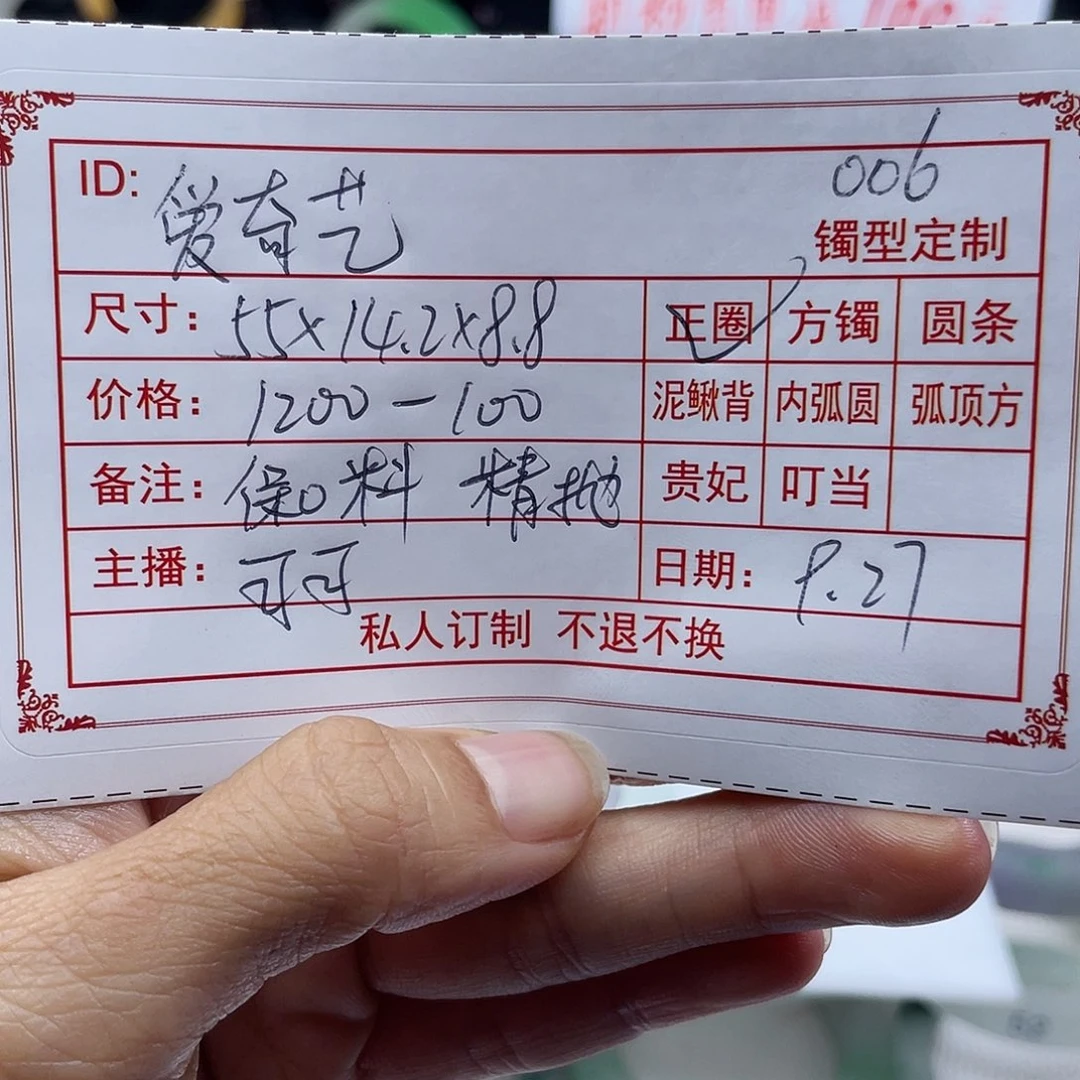 ID: 爱奇艺 006
镯型定制
尺寸: 55×14.2×8.8 正圈 方镯 圆条
价格: 1200-100 泥鳅背 内弧圆 弧顶方
备注: 保口料 精抛 贵妃 叮当
主播: 可可 日期: 9.27
私人订制 不退不换